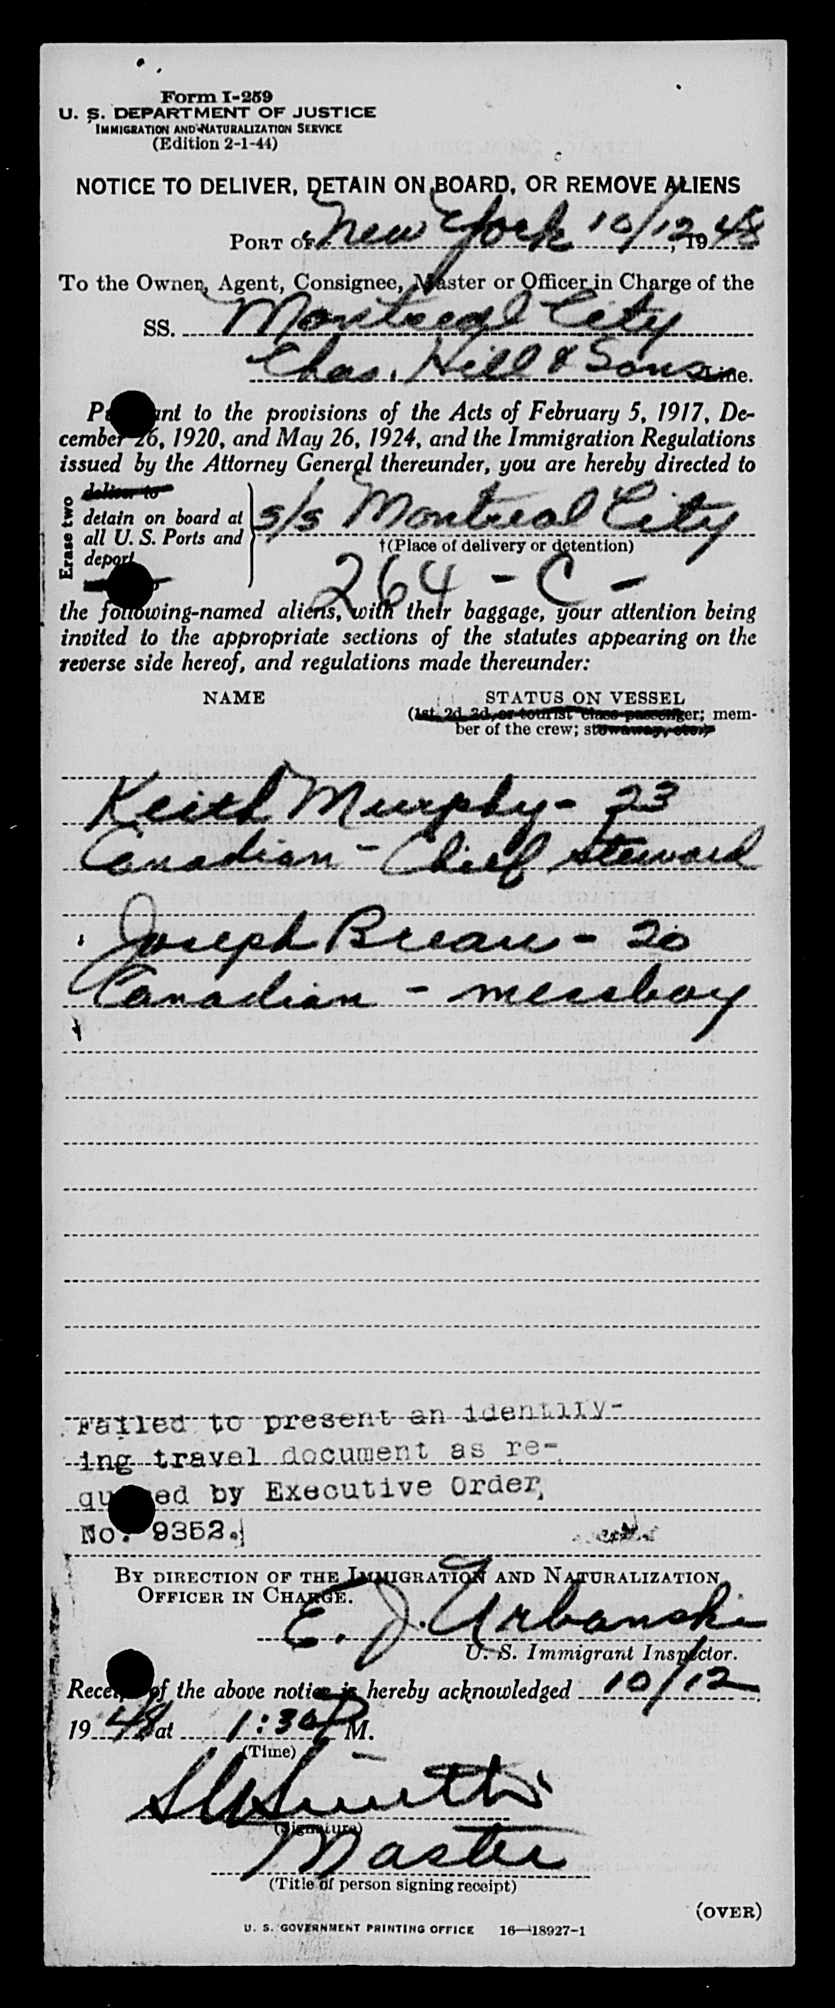 Form I-259
U. S. DEPARTMENT OF JUSTICE
IMMIGRATION AND NATURALIZATION SERVICE
(Edition 2-1-44)
NOTICE TO DELIVER, DETAIN ON BOARD, OR REMOVE ALIENS
PORT OF New York 10/12, 1948
To the Owner, Agent, Consignee, Master or Officer in Charge of the
SS. Montreal City
Chas. Hill & Sons Line.
Pursuant to the provisions of the Acts of February 5, 1917, De-
cember 26, 1920, and May 26, 1924, and the Immigration Regulations
issued by the Attorney General thereunder, you are hereby directed to
Erase two
deliver to
detain on board at
all U. S. Ports and
deport
s/s Montreal City
†(Place of delivery or detention)
264 - C -
the following-named aliens, with their baggage, your attention being
invited to the appropriate sections of the statutes appearing on the
reverse side hereof, and regulations made thereunder:
NAME STATUS ON VESSEL
(1st, 2d, 3d, or tourist class passenger; mem-
ber of the crew; stowaway, etc.)
Keith Murphy - 23
Canadian - Chief Steward
Joseph Breau - 20
Canadian - messboy
Failed to present an identify-
ing travel document as re-
quired by Executive Order,
No. 9352.
BY DIRECTION OF THE IMMIGRATION AND NATURALIZATION
OFFICER IN CHARGE.
E. J. Urbanski
U. S. Immigrant Inspector.
Receipt of the above notice is hereby acknowledged 10/12
1948 at 1:30 P M.
(Time)
(Signature)
Master
(Title of person signing receipt)
(OVER)
U. S. GOVERNMENT PRINTING OFFICE 16—18927-1